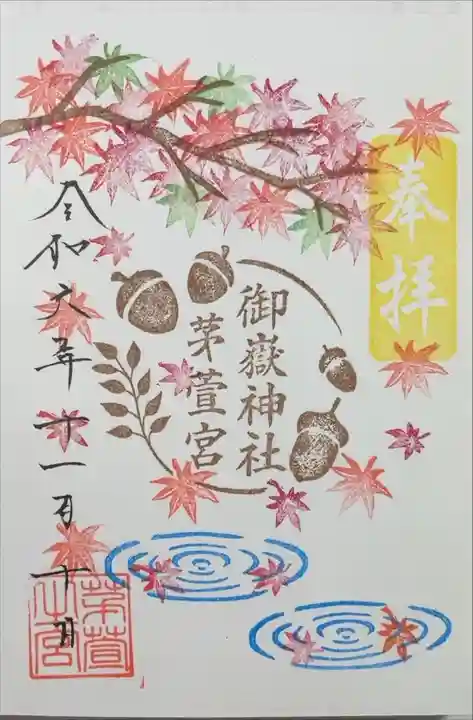 奉拝
御嶽神社
茅萱宮
令和六年十一月十日
茅萱
之宮